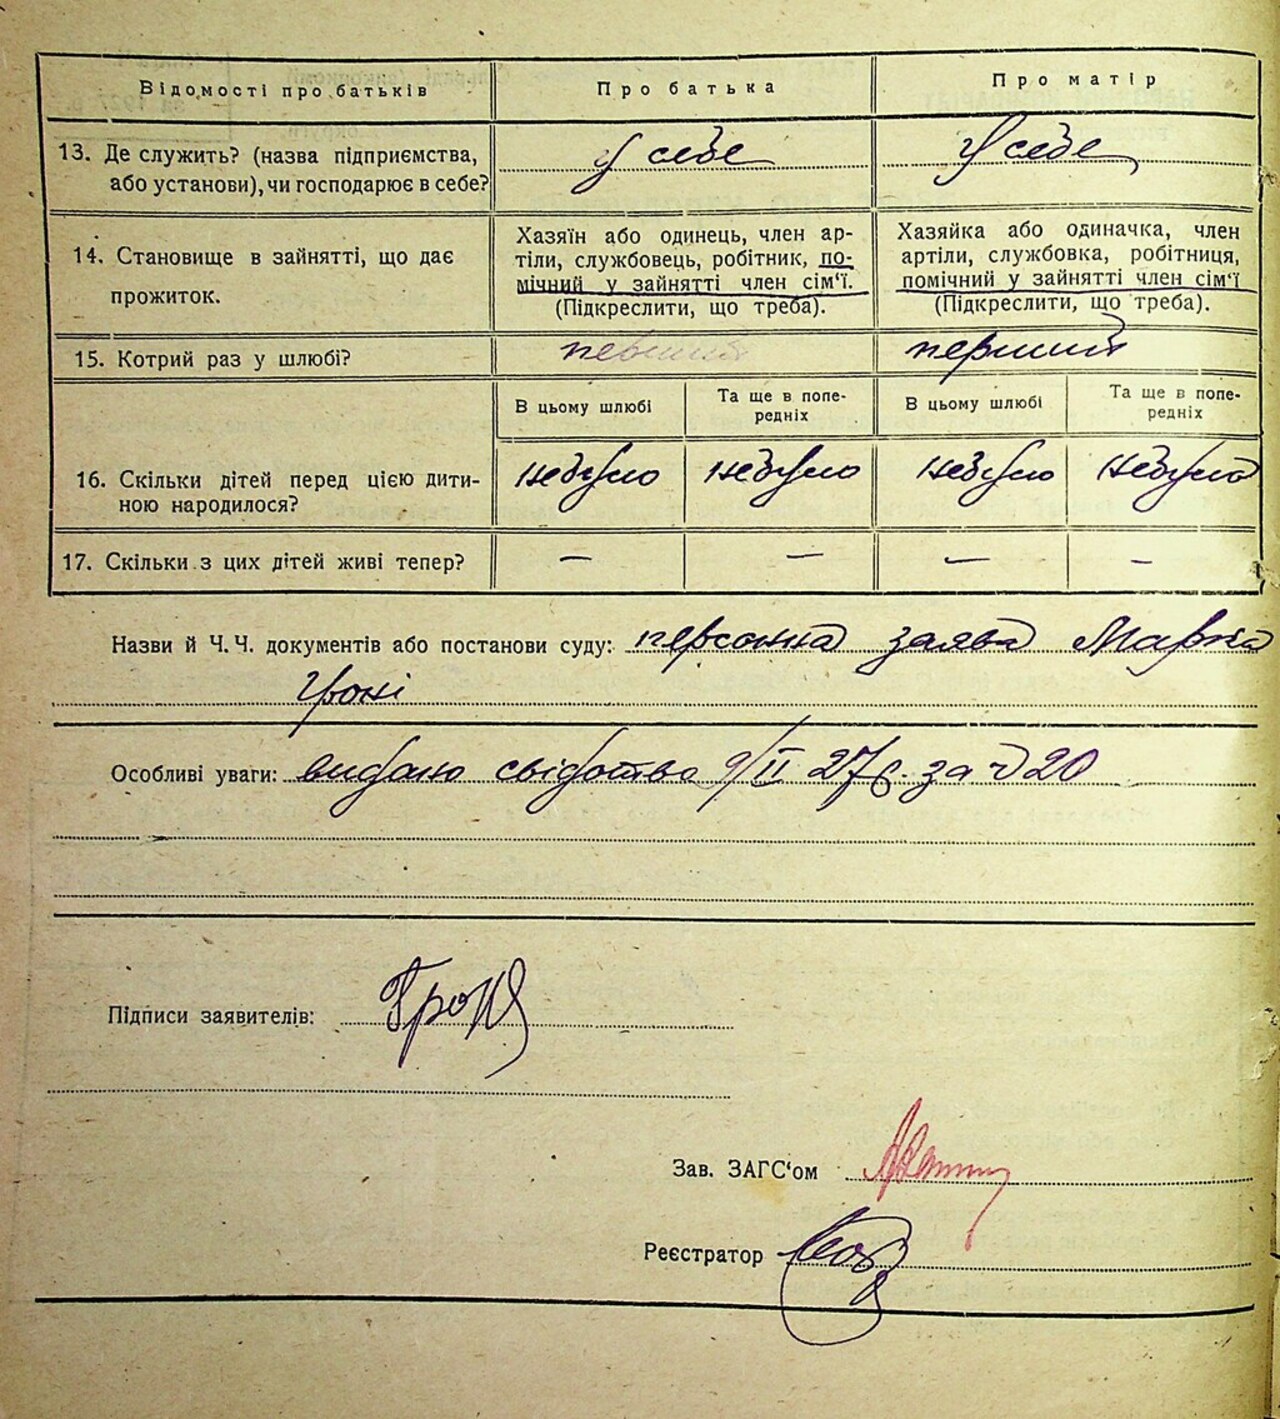 Відомості про батьків
Про батька
Про матір
13. Де служить? (назва підприємства,
або установи), чи господарює в себе?
У себе
У себе
14. Становище в зайнятті, що дає
прожиток.
Хазяїн або одинець, член ар-
тіли, службовець, робітник, по-
мічний у зайнятті член сім‘ї.
(Підкреслити, що треба).
Хазяйка або одиначка, член
артіли, службовка, робітниця,
помічний у зайнятті член сім‘ї
(Підкреслити, що треба).
15. Котрий раз у шлюбі?
первий
перший
В цьому шлюбі
Та ще в попе-
редніх
В цьому шлюбі
Та ще в попе-
редніх
16. Скільки дітей перед цією дити-
ною народилося?
небуло
небуло
небуло
небуло
17. Скільки з цих дітей живі тепер?
— — — —
Назви й Ч. Ч. документів або постанови суду: персонна заява Марка
Гроні
Особливі уваги: видано свідотво 9/II 27 р. за № 20
Підписи заявителів: Гроня
Зав. ЗАГС‘ом
Реєстратор